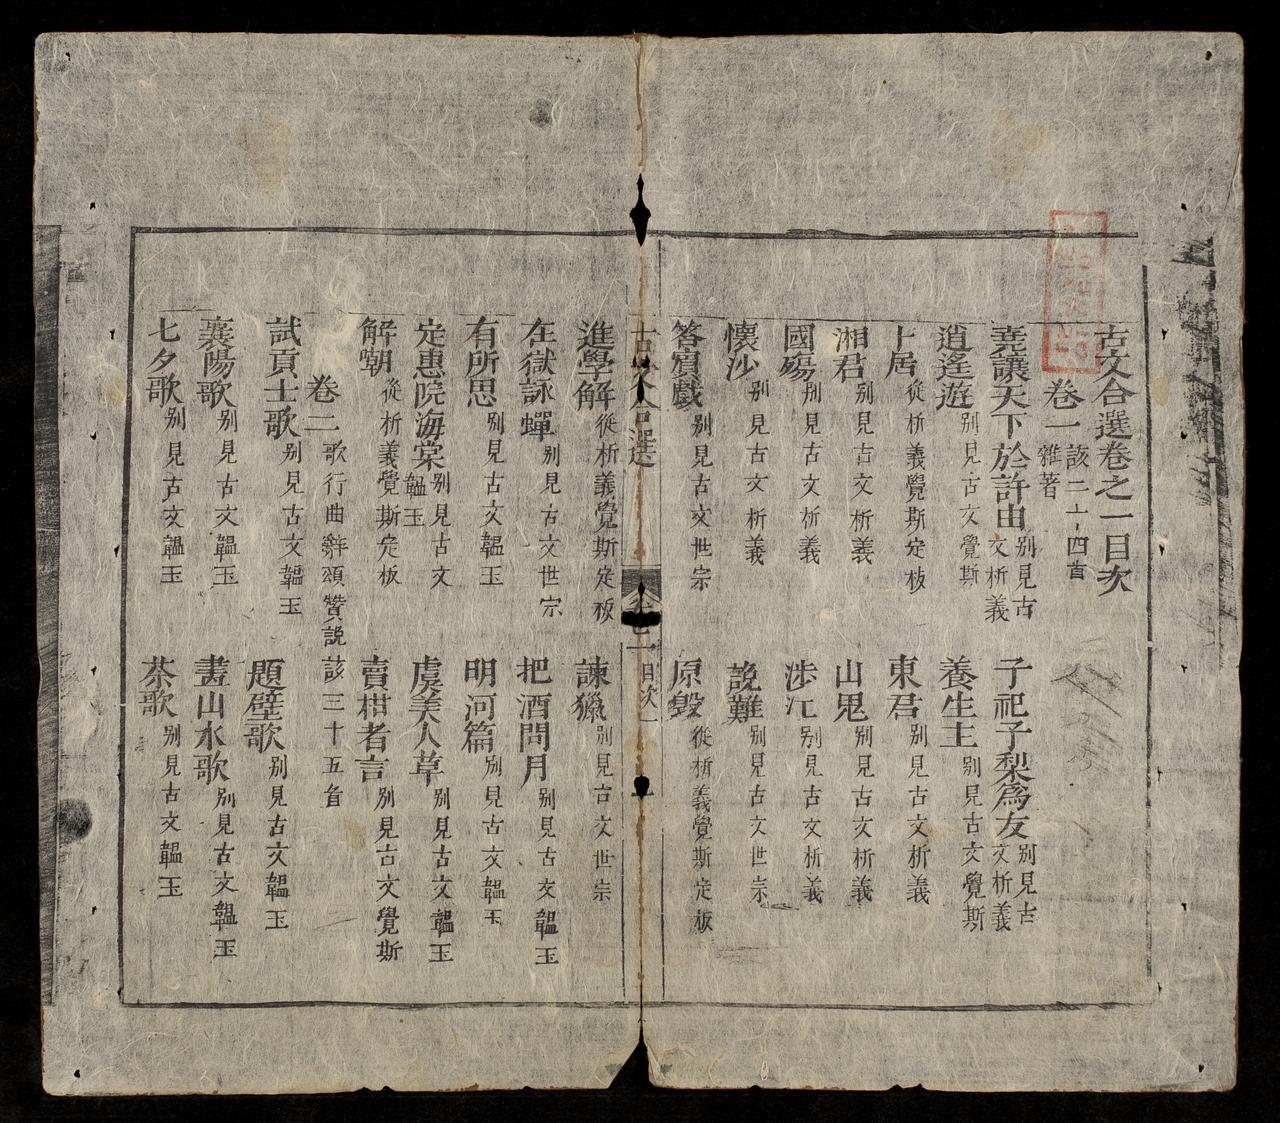 古文合選卷之一目次
卷一 該二十四首
雜著
堯讓天下於許由 別見古文析義 子祀子犁爲友 別見古文析義
逍遙遊 別見古文覺斯 養生主 別見古文覺斯
卜居 從析義覺斯定板 東君 別見古文析義
湘君 別見古文析義 山鬼 別見古文析義
國殤 別見古文析義 涉江 別見古文析義
懷沙 別見古文析義 說難 別見古文世宗
答賓戲 別見古文世宗 原毀 從析義覺斯定板
古文合選 卷一 目次 一
進學解 從析義覺斯定板 諫獵 別見古文世宗
在獄詠蟬 別見古文世宗 把酒問月 別見古文韞玉
有所思 別見古文韞玉 明河篇 別見古文韞玉
定惠院海棠 別見古文韞玉 虞美人草 別見古文韞玉
解嘲 從析義覺斯定板 賣柑者言 別見古文覺斯
卷二 歌行曲辭頌贊說 該三十五首
試貢士歌 別見古文韞玉 題壁歌 別見古文韞玉
襄陽歌 別見古文韞玉 畫山水歌 別見古文韞玉
七夕歌 別見古文韞玉 茶歌 別見古文韞玉